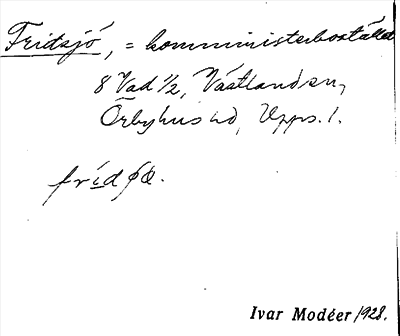 Fridsjö, = komministerbostället
8 Vad 1/2, Västland sn,
Örbyhus hd, Upps. l.
frìdʃɷ.
Ivar Modéer 1928.